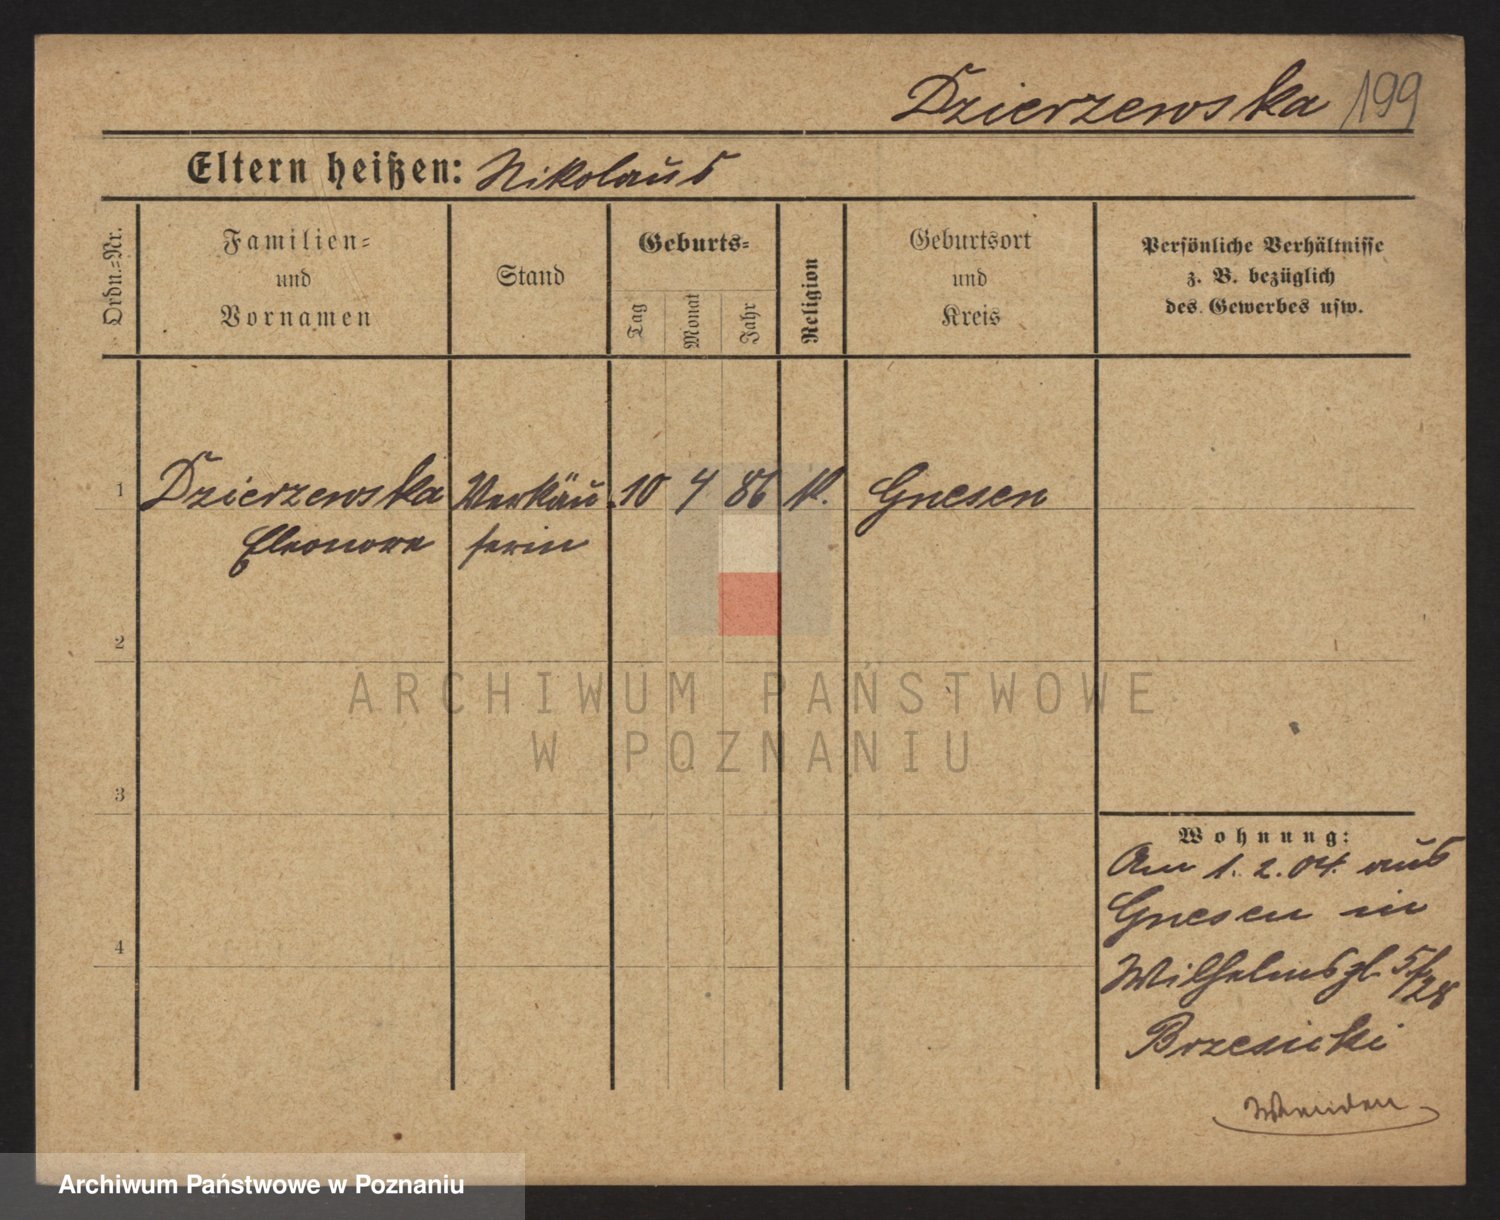 Dzierzewska 199
Eltern heißen: Nikolaus
Ordn.-Nr.
Familien-
und
Vornamen
Stand
Geburts-
Tag
Monat
Jahr
Religion
Geburtsort
und
Kreis
Persönliche Verhältnisse
z. B. bezüglich
des Gewerbes usw.
1 Dzierzewska Verkäu 10 4 86 k. Gnesen
Eleonore ferin
2
3
4
Wohnung:
Am 1. 2. 04. aus
Gnesen in
Wilhelmspl. 5
Wenden
ARCHIWUM PAŃSTWOWE
W POZNANIU
Archiwum Państwowe w Poznaniu